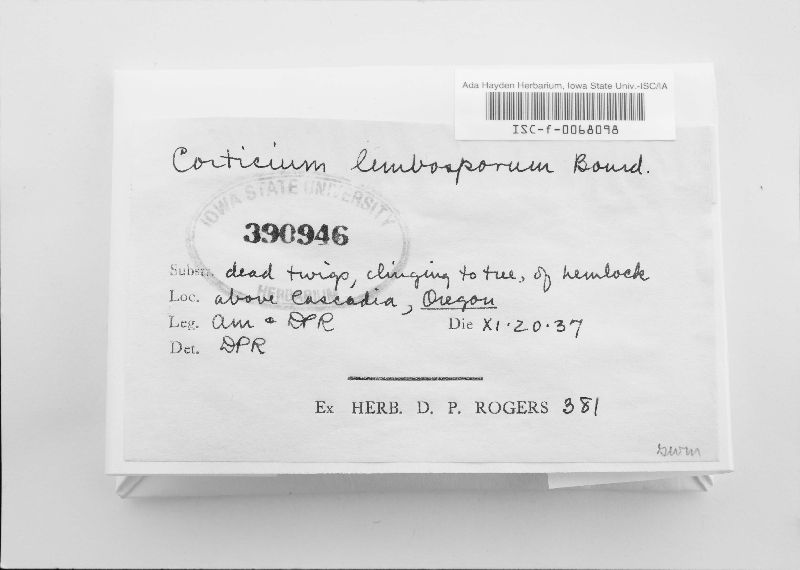 Ada Hayden Herbarium, Iowa State Univ.-ISC/IA
ISC-f-0068098
Corticium lembosporum Bourd.
IOWA STATE UNIVERSITY
390946
HERBARIUM
Substr. dead twigs, clinging to tree, of hemlock
Loc. above Cascadia, Oregon
Leg. am & DPR Die XI.20.37
Det. DPR
Ex HERB. D. P. ROGERS 381